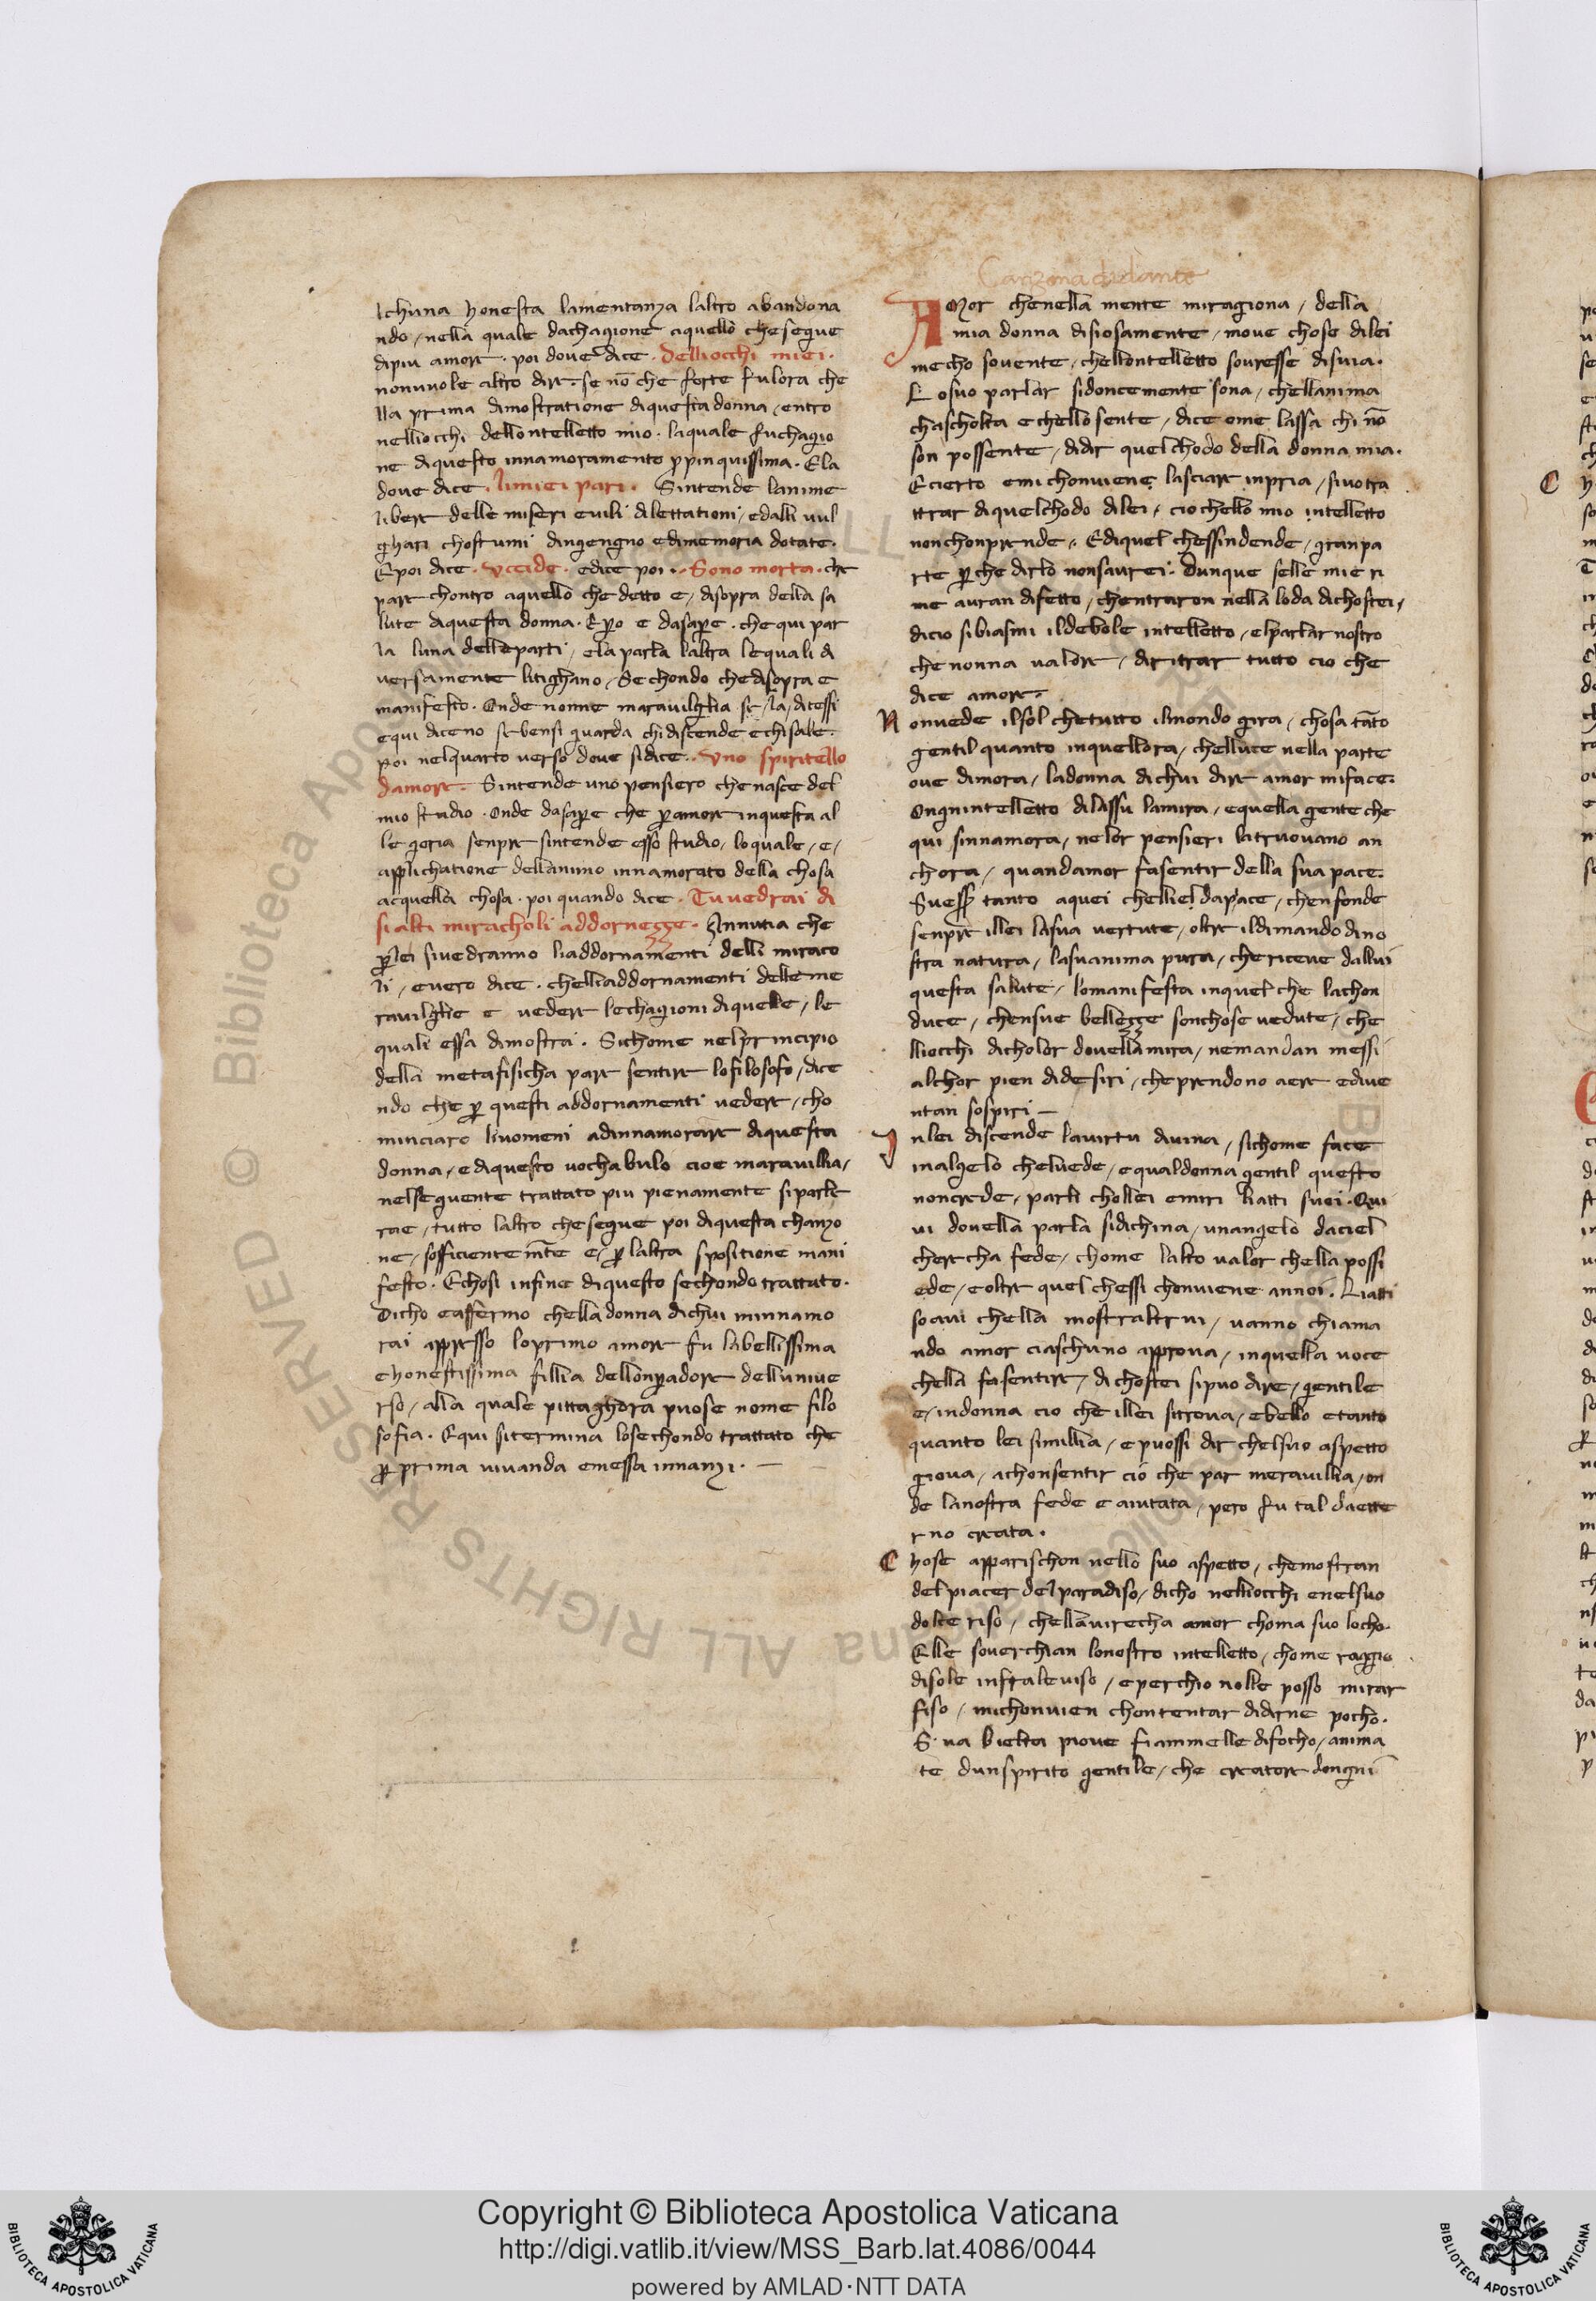 lchuna honesta lamentanza laltro abandona
ndo / nella quale dachagione aquello che segue
dipiu amore. poi dove dice. delliocchi miei.
nonuvole altro dire. se nō che forte fu lora che
lla prima dimostratione diquesta donna / entro
nelliocchi dellontelletto mio. laquale fu chagio
ne diquesto innamoramento ꝓpinquissima. Ela
dove dice. limiei pari. Sintende lanime
libere delle miseri evili dilettationi / edalli vul
ghari chostumi dingengno edimemoria dotate.
E poi dice. vccide. edice poi. Sono morta. che
pare chontro aquello che detto e / disopra della sa
lute diquesta donna. Eꝑo e dasaꝑe. che qui par
la luna delle parti / ela parla laltra lequali di
versamente litighano / Sechondo che disopra e
manifesto. Onde nonne maravilglia se / la / dicessi
equi dice no se bensi guarda chi discende echi sale.
poi nelquarto verso dove sidice. Uno spiritello
damore. Sintende uno pensiero che nasce del
mio studio. Onde dasaꝑe che ꝑamore inquesta al
legoria senpre sintende esso studio / lo quale / e /
applichatione dellanimo innamorato della chosa
acquella chosa. poi quando dice. Tu vedrai di
si alti miracholi addornezze. Annutia che
ꝑlei sivedranno liaddornamenti delli miraco
li / evero dice. chelliaddornamenti delleme
ravilglie e vedere lechagioni diquelle / le
quali essa dimostra. Sichome nelprincipio
della metafisicha pare sentire lofilosofo / dice
ndo che ꝑ questi addornamenti vedere / cho
minciaro livomeni adinnamorare diquesta
donna / ediquesto vochabulo cioe maravillia /
nelseguente trattato piu pienamente siparle
rae / tutto laltro che segue poi diquesta chanzo
ne / sofficientemēte e / ꝑ laltra spositione mani
festo. Echosi infine diquesto sechondo trattato.
Dicho eaffermo chella donna dichui minnamo
rai appresso loprimo amore fu labellissima
ehonestissima fillia dellonꝑadore delluniue
rso / alla quale pittaghora puose nome filo
sofia. Equi sitermina losechondo trattato che
ꝑ prima vivanda emessa innanzi. —
Canzona di dante
AMor chenella mente miragiona / della
mia donna disiosamente / move chose dilei
mecho sovente / chellontelletto sovresse disvia.
Losuo parlar sidoncemente sona / chellanima
chascholta echello sente / dice ome lassa chi nō
son possente / didir quelchodo della donna mia.
Ecierto emi chonviene lasciare inpria / sivo tra
ttrar diquelchodo dilei / cio chello mio intelletto
nonchonprende. Ediquel chessindende / granpa
rte ꝑche dirlo nonsavrei. Dunque selle mie ri
me avran difetto / chentraron nella loda dichostei /
dicio sibiasmi ildebole intelletto / elparlar nostro
che nonna valore / diritrar tutto cio che
dice amore.
Nonvede ilsol chetutto ilmondo gira / chosa tāto
gentil quanto inquellora / chelluce nella parte
ove dimora / ladonna dichui dire amor miface.
Ongnintelletto dilassu lamira / equella gente che
qui sinnamora / nelor pensieri latruovano an
chora / quandamor fasentir della sua pace.
Suesser tanto aquei chelliel dapace / chenfonde
senpre illei lasua vertute / oltre ildimando dino
stra natura / lasuanima pura / chericeve dallui
questa salute / lomanifesta inquel che lachon
duce / chensue bellezze sonchose vedute / che
lliocchi dicholor dovellamira / nemandan messi
alchor pien didesiri / cheprendono aere edive
ntan sospiri —
Inlei discende lavirtu divina / sichome face
inalgelo chelvede / equaldonna gentil questo
noncrede / parli chollei emiri liatti suei. Qui
vi dovella parla sidichina / unangelo daciel
chercha fede / chome lalto valor chella possi
ede / eoltre quel chessi chonviene annoi. Liatti
soavi chella mostraltrui / vanno chiama
ndo amor ciaschuno approva / inquella voce
chella fasentire / dichostei sipuo dire / gentile
e / indonna cio che illei sitrova / ebello etanto
quanto lei simillia / epuossi dir chelsuo aspetto
giova / achonsentir cio che par meravillia / on
de lanostra fede e aiutata / pero fu tal daette
rno creata.
Chose apparischon nello suo aspetto / chemostran
delpiacer delparadiso / dicho nelliocchi enelsuo
dolce riso / chellavirecha amor choma suo locho.
Elle soverchian lonostro intelletto / chome raggio
disole infralevisо / eperchio nolle posso mirar
fiso / michonvien chontentar didirne pocho.
Sua bielta piove fiammelle difocho / anima
te dunspirito gentile / che creatore dongni
Copyright © Biblioteca Apostolica Vaticana
http://digi.vatlib.it/view/MSS_Barb.lat.4086/0044
powered by AMLAD·NTT DATA